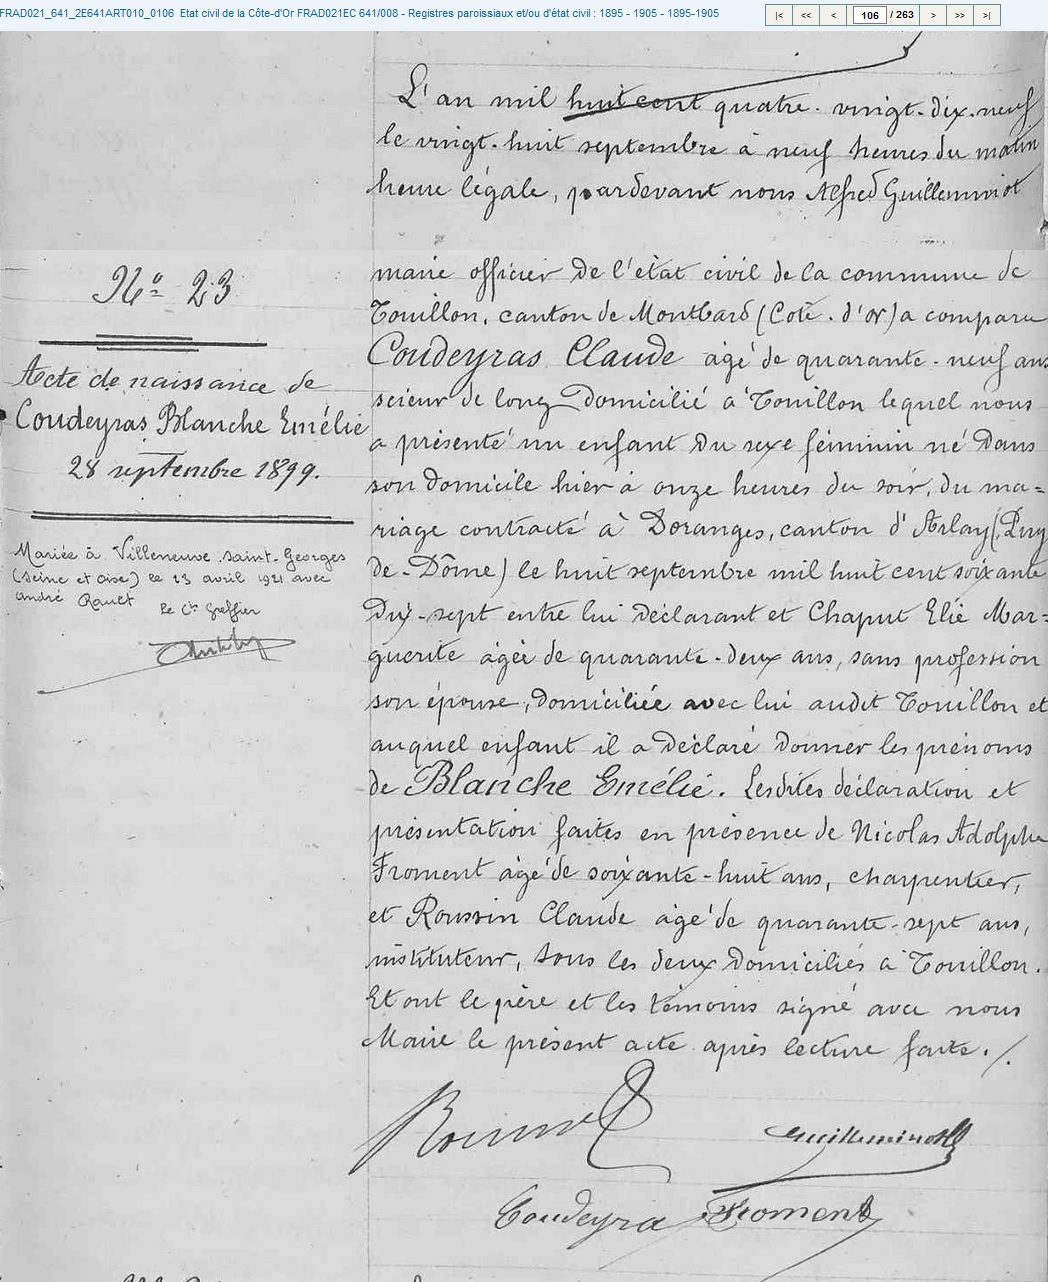 FRAD021_641_2E641ART010_0106 Etat civil de la Côte-d'Or FRAD021EC 641/008 - Registres paroissiaux et/ou d'état civil : 1895 - 1905 - 1895-1905
|< << < 106 / 263 > >> >|
L'an mil huit cent quatre-vingt-dix-neuf
le vingt-huit septembre à neuf heures du matin
heure légale, pardevant nous Alfred Guilleminot
maire officier de l'état civil de la commune de
Touillon, canton de Montbard (Côte-d'or) a comparu
Coudeyras Claude âgé de quarante-neuf ans
scieur de long domicilié à Touillon lequel nous
a présenté un enfant du sexe féminin né dans
son domicile hier à onze heures du soir, du ma=
riage contracté à Doranges, canton d'Arlay (Puy
de-Dôme) le huit septembre mil huit cent soixante
dix-sept entre lui déclarant et Chaput Elie Mar=
guerite âgée de quarante-deux ans, sans profession
son épouse, domiciliée avec lui audit Touillon et
auquel enfant il a déclaré donner les prénoms
de Blanche Emélie. Lesdites déclaration et
présentation faites en présence de Nicolas Adolphe
Froment âgé de soixante-huit ans, charpentier,
et Roussin Claude âgé de quarante-sept ans,
instituteur, tous les deux domiciliés à Touillon.
Et ont le père et les témoins signé avec nous
Maire le présent acte après lecture faite. /.
Guilleminot
Coudeyra Froment
No 23
Acte de naissance de
Coudeyras Blanche Emélie
28 septembre 1899.
Mariée à Villeneuve-Saint-Georges
(Seine et Oise) le 23 avril 1921 avec
André Rauet
Le Cis Greffier